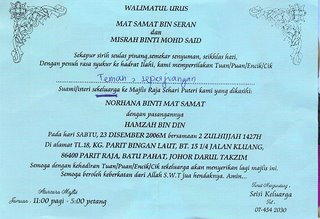 WALIMATUL URUS
MAT SAMAT BIN SERAN
dan
MISRAH BINTI MOHD SAID
Sekapur sirih seulas pinang, semekar senyuman, seikhlas hati,
Dengan penuh rasa syukur ke hadrat Ilahi, kami mempersilakan Tuan/Puan/Encik/Cik
Teman seperjuangan
Suami/isteri sekeluarga ke Majlis Raja Sehari Puteri kami yang dikasihi:
NORHANA BINTI MAT SAMAT
dengan pasangannya
HAMZAH BIN DIN
Pada hari SABTU, 23 DISEMBER 2006M bersamaan 2 ZULHIJJAH 1427H
Di alamat TL.18, KG. PARIT BINGAN LAUT, BT. 15 1/4 JALAN KLUANG,
86400 PARIT RAJA, BATU PAHAT, JOHOR DARUL TAKZIM
Semoga dengan kehadiran Tuan/Puan/Encik/Cik sekeluarga akan menyerikan lagi majlis ini.
Semoga beroleh keberkatan dari Allah S.W.T jua hendaknya. Amin...
Aturcara Majlis
Jamuan : 11:00 pagi - 5:00 petang
Turut Mengundang :
Seisi Keluarga
Tel :
07-454 2030